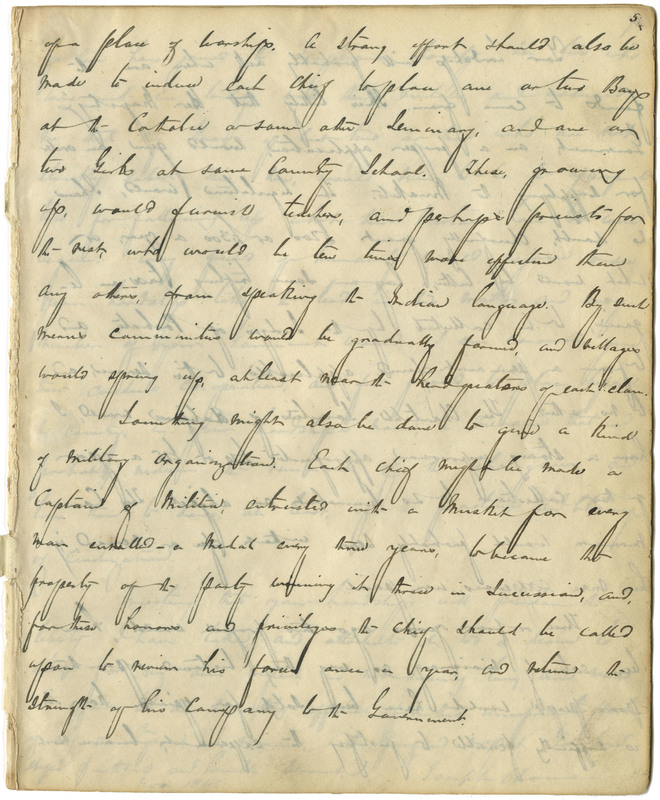 5
of a place of worship. A strong effort should also be
made to induce each chief to place one or two Boys
at the Catholic or some other Seminary, and one or
two Girls at some County School. These, growing
up, would furnish teachers, and perhaps priests for
the rest, who would be ten times more effective than
any others, from speaking the Indian language. By such
means communities would be gradually formed, and villages
would spring up, at least near the headquarters of each clan.
Something might also be done to give a kind
of military organization. Each chief might be made a
Captain of Militia, entrusted with a Musket for every
man enrolled - a Medal every three years, to become the
property of the party winning it thrice in Succession, and,
for these honors and privileges the chief should be called
upon to review his force once a year, and return the
strength of his Company to the Government.